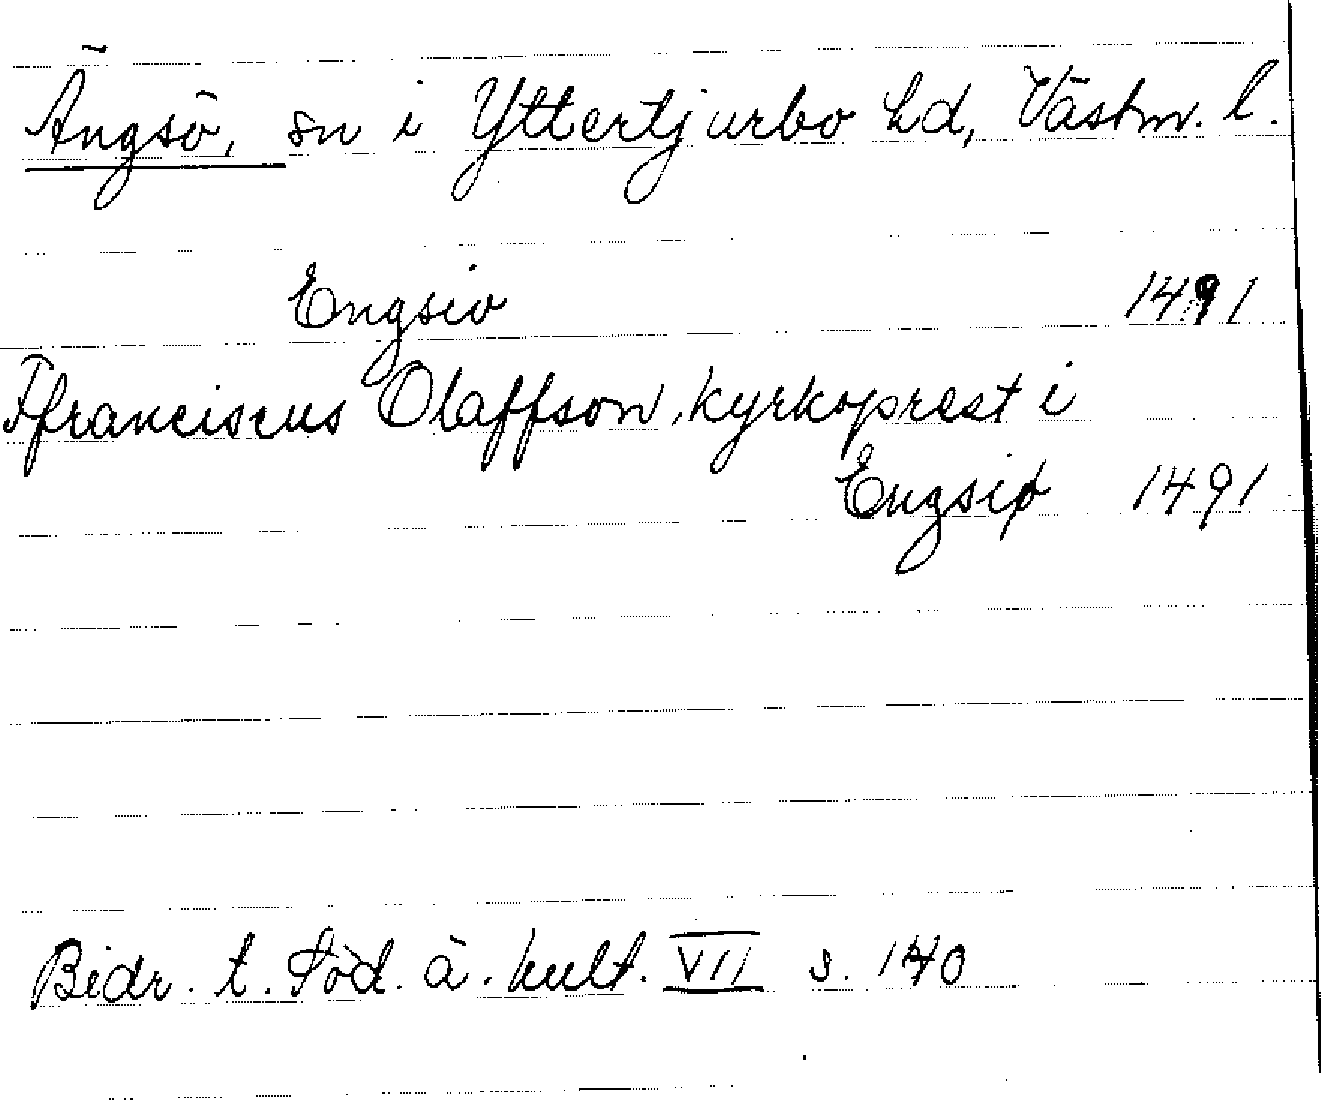 Ängsö, sn i Yttertjurbo hd, Västm. l.
Engsio 1491
Ffranciscus Olaffson, kyrkoprest i
Engsiø 1491
Bidr. t. Söd. ä. kult. VII s. 140